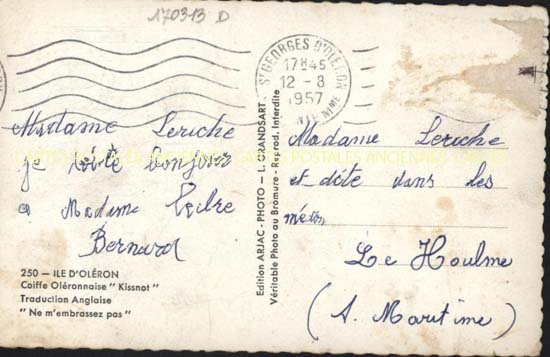 170313 D
ST GEORGES D'OLÉRON
17H45
12-8
1957
Madame Leriche
je bonjour
a Madame
Bernard
250 — ILE D'OLÉRON
Coiffe Oléronnaise " Kissnot "
Traduction Anglaise
" Ne m'embrassez pas "
Edition ARJAC - PHOTO — L. GRANDSART -
Véritable Photo au Bromure - Reprod. Interdite
Madame Leriche
et dote dans les
Le Houlme
(S. Maritime)